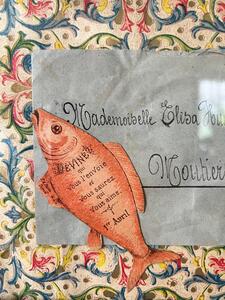 Mademoiselle Elisa
Moutier
DEVINEZ
qui
vous l'envoie
et
vous saurez
qui
vous aime
1er Avril